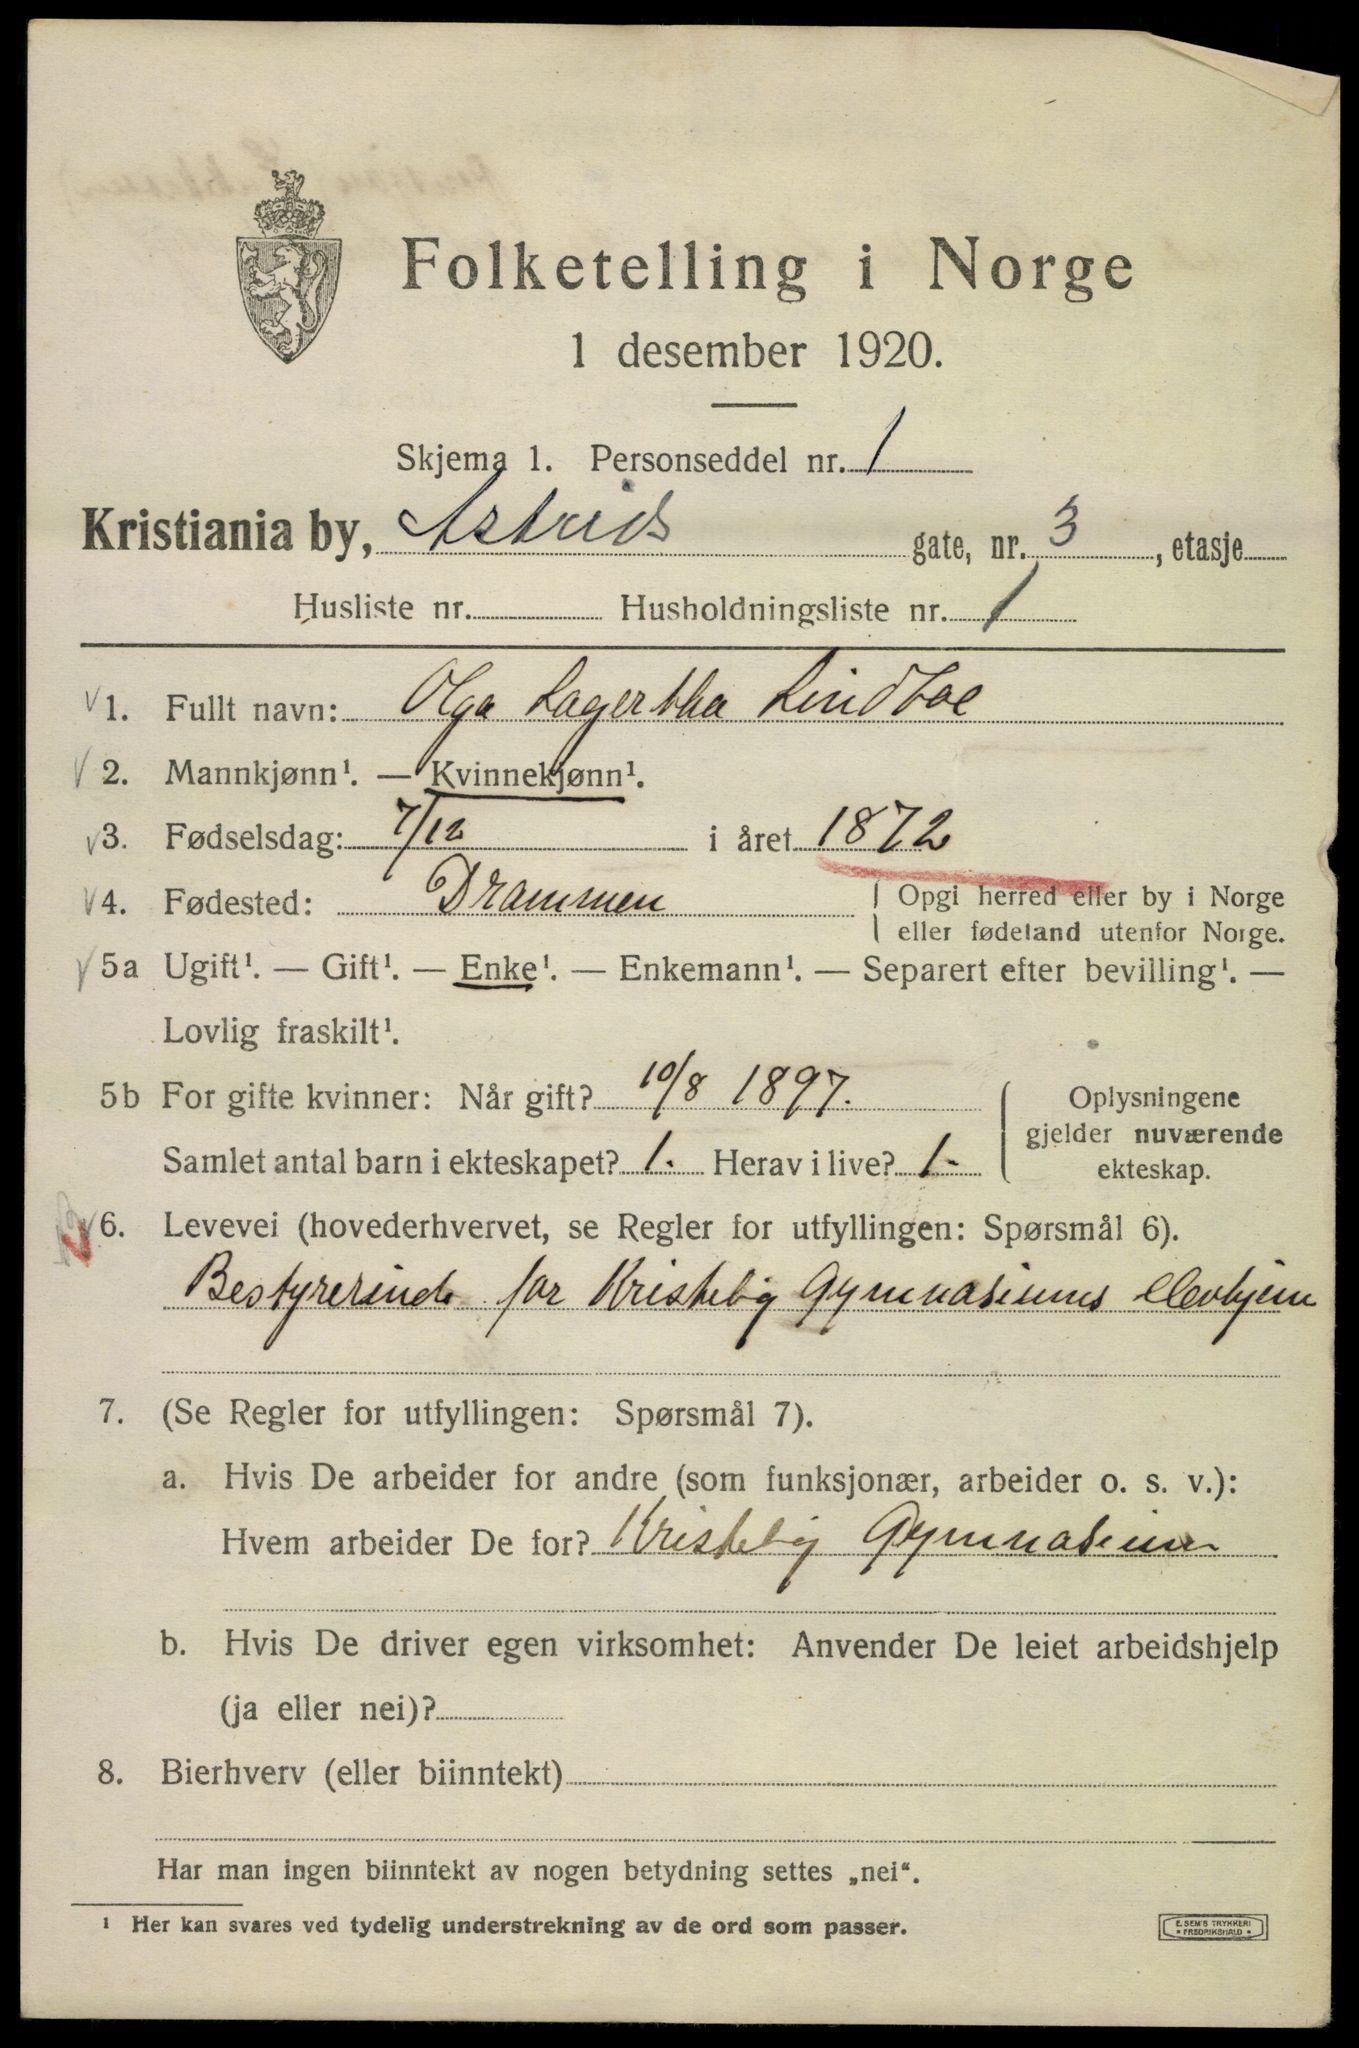 Folketelling i Norge
1 desember 1920.
Skjema 1. Personseddel nr. 1
Kristiania by, Astrids gate, nr. 3, etasje
Husliste nr. Husholdningsliste nr. 1
1. Fullt navn: Olga Lagertha Lindboe
2. Mannkjønn¹. — Kvinnekjønn¹.
3. Fødselsdag: 7/12 i året 1872
4. Fødested: Drammen Opgi herred eller by i Norge
eller fødeland utenfor Norge.
5a Ugift¹. — Gift¹. — Enke¹. — Enkemann¹. — Separert efter bevilling¹. —
Lovlig fraskilt¹.
5b For gifte kvinner: Når gift? 10/8 1897. Oplysningene
gjelder nuværende
Samlet antal barn i ekteskapet? 1. Herav i live? 1.
ekteskap.
6. Levevei (hovederhvervet, se Regler for utfyllingen: Spørsmål 6).
Bestyrerinde for Kristelig Gymnasiums elevhjem
7. (Se Regler for utfyllingen: Spørsmål 7).
a. Hvis De arbeider for andre (som funksjonær, arbeider o. s. v.):
Hvem arbeider De for? Kristelig Gymnasium
b. Hvis De driver egen virksomhet: Anvender De leiet arbeidshjelp
(ja eller nei)?
8. Bierhverv (eller biinntekt)
Har man ingen biinntekt av nogen betydning settes „nei“.
¹ Her kan svares ved tydelig understrekning av de ord som passer.
E. SEM'S TRYKKERI
FREDRIKSHALD